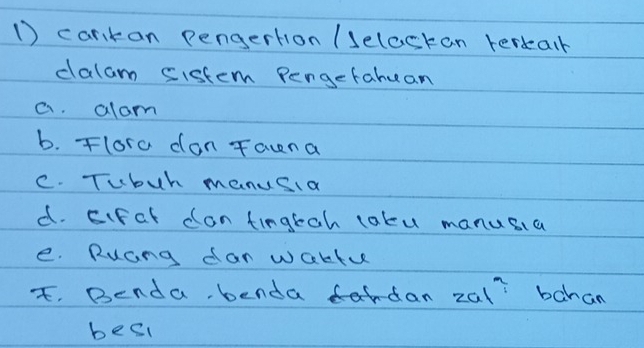 1) carikan pengertian / Jelaskan terkait
dalam sistem Pengetahuan
a. alam
b. Flora dan Fauna
c. Tubuh manusia
d. sifat dan tingkah laku manusia
e. Ruang dan waktu
F. Benda-benda dan zat² bahan
besi